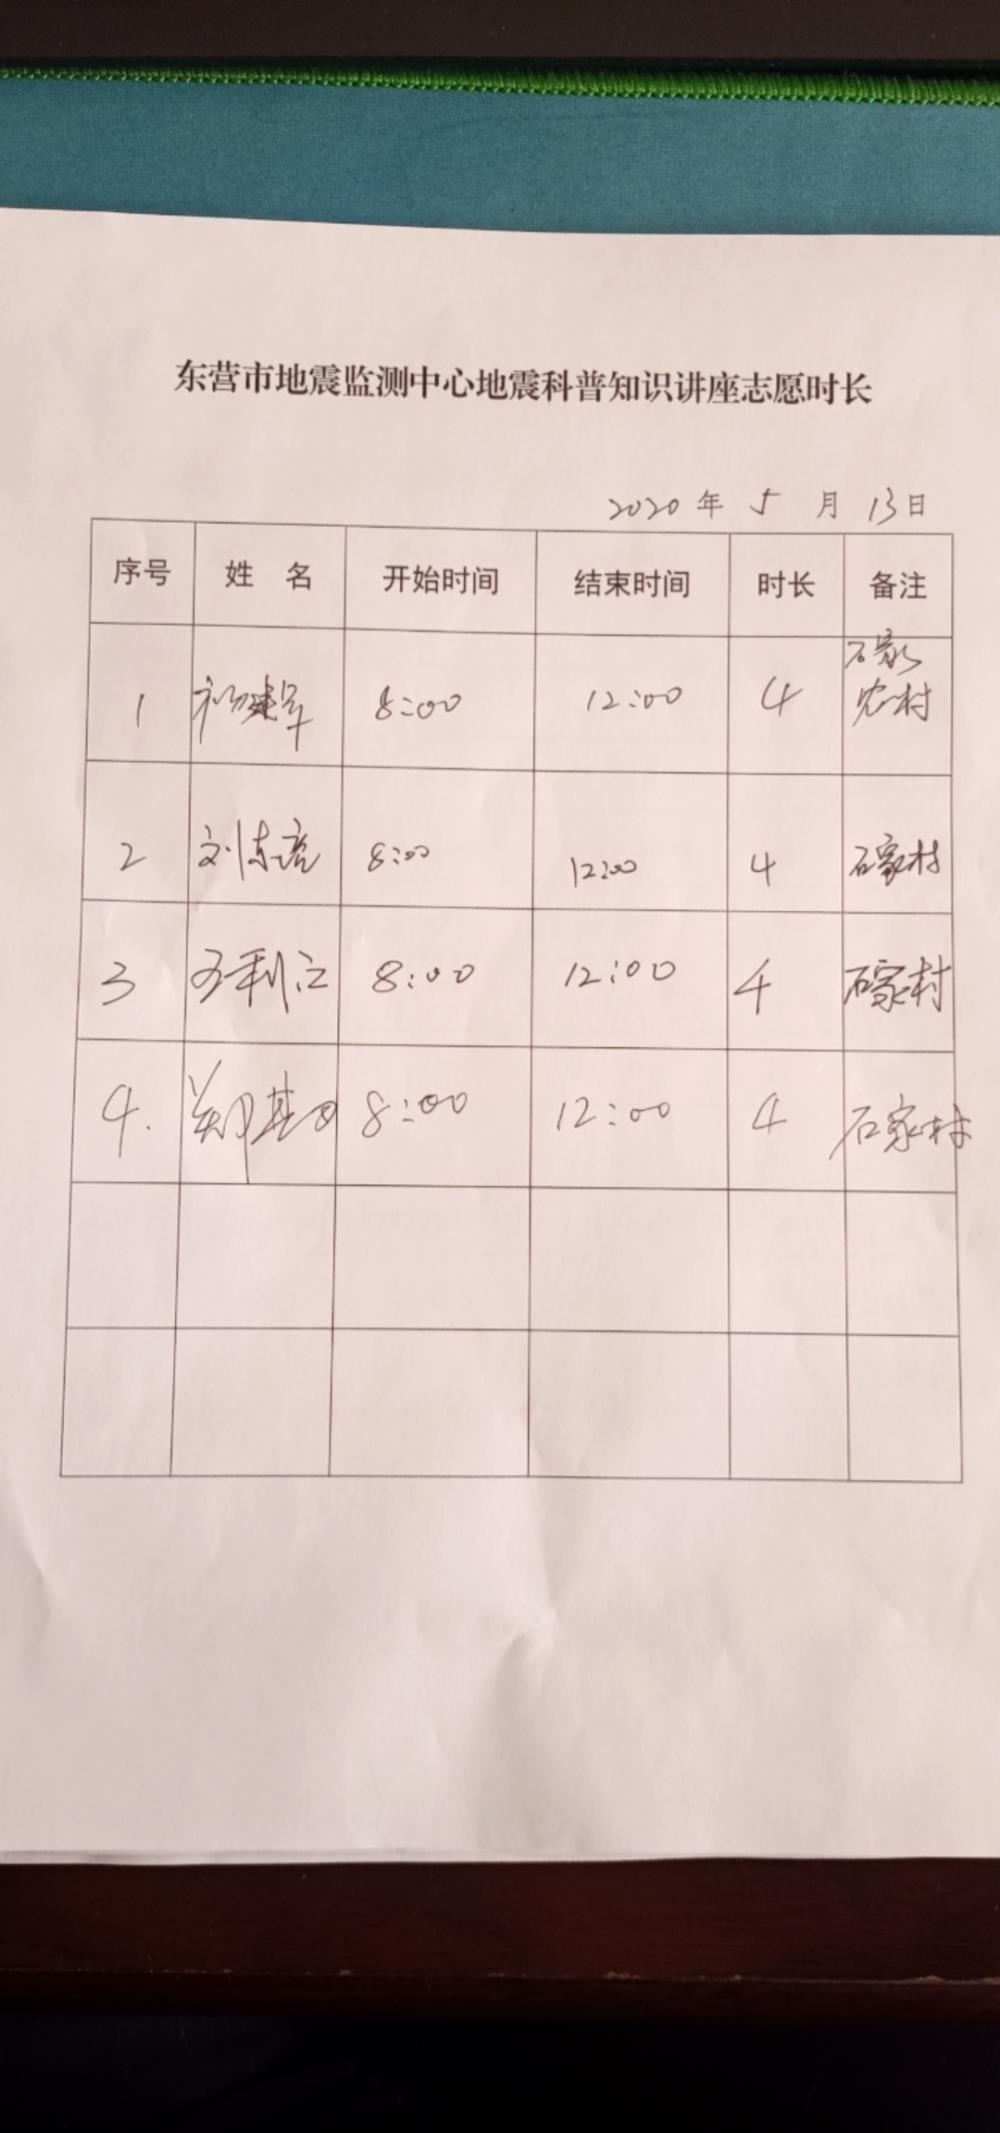 东营市地震监测中心地震科普知识讲座志愿时长
2020 年 5 月 13 日
序号 姓 名 开始时间 结束时间 时长 备注
1 建军 8:00 12:00 4 石家
农村
2 刘东亮 8:00 12:00 4 石家村
3 利江 8:00 12:00 4 石家村
4. 郑其 8:00 12:00 4 石家村